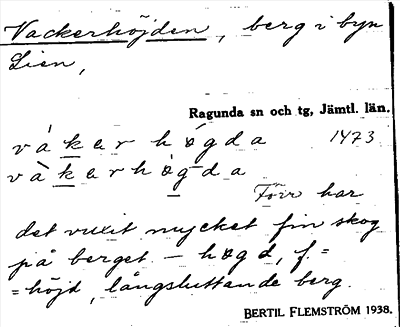 Vackerhöjden, berg i byn
Lien,
Ragunda sn och tg, Jämtl. län.
vákerhøgda 1473
vàkerhøgda
Förr har
det vuxit mycket fin skog
på berget. — høgd, f. =
= höjd, långsluttande berg.
BERTIL FLEMSTRÖM 1938.